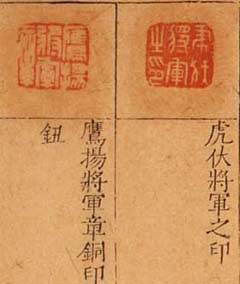 虎伏將軍之印
鷹揚將軍章銅印
鈕